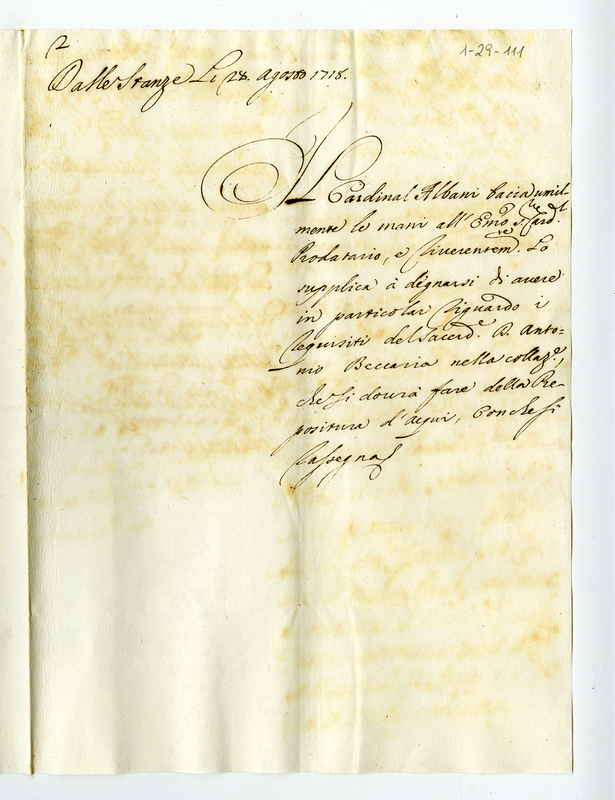 2
1-29-111
Dalle Stanze Li 28. Agosto 1718.
Il Cardinal Albani bacia umil-
mente le mani all' Emo Sre Cardl
Prodatario, e riverentemte. Lo
supplica à degnarsi di avere
in particolar riguardo i
requisiti del Sacerde. D. Anto=
nio Beccaria nella collaze.,
che si dourà fare della Pre-
positura d'Acqui, Con che si
rassegna